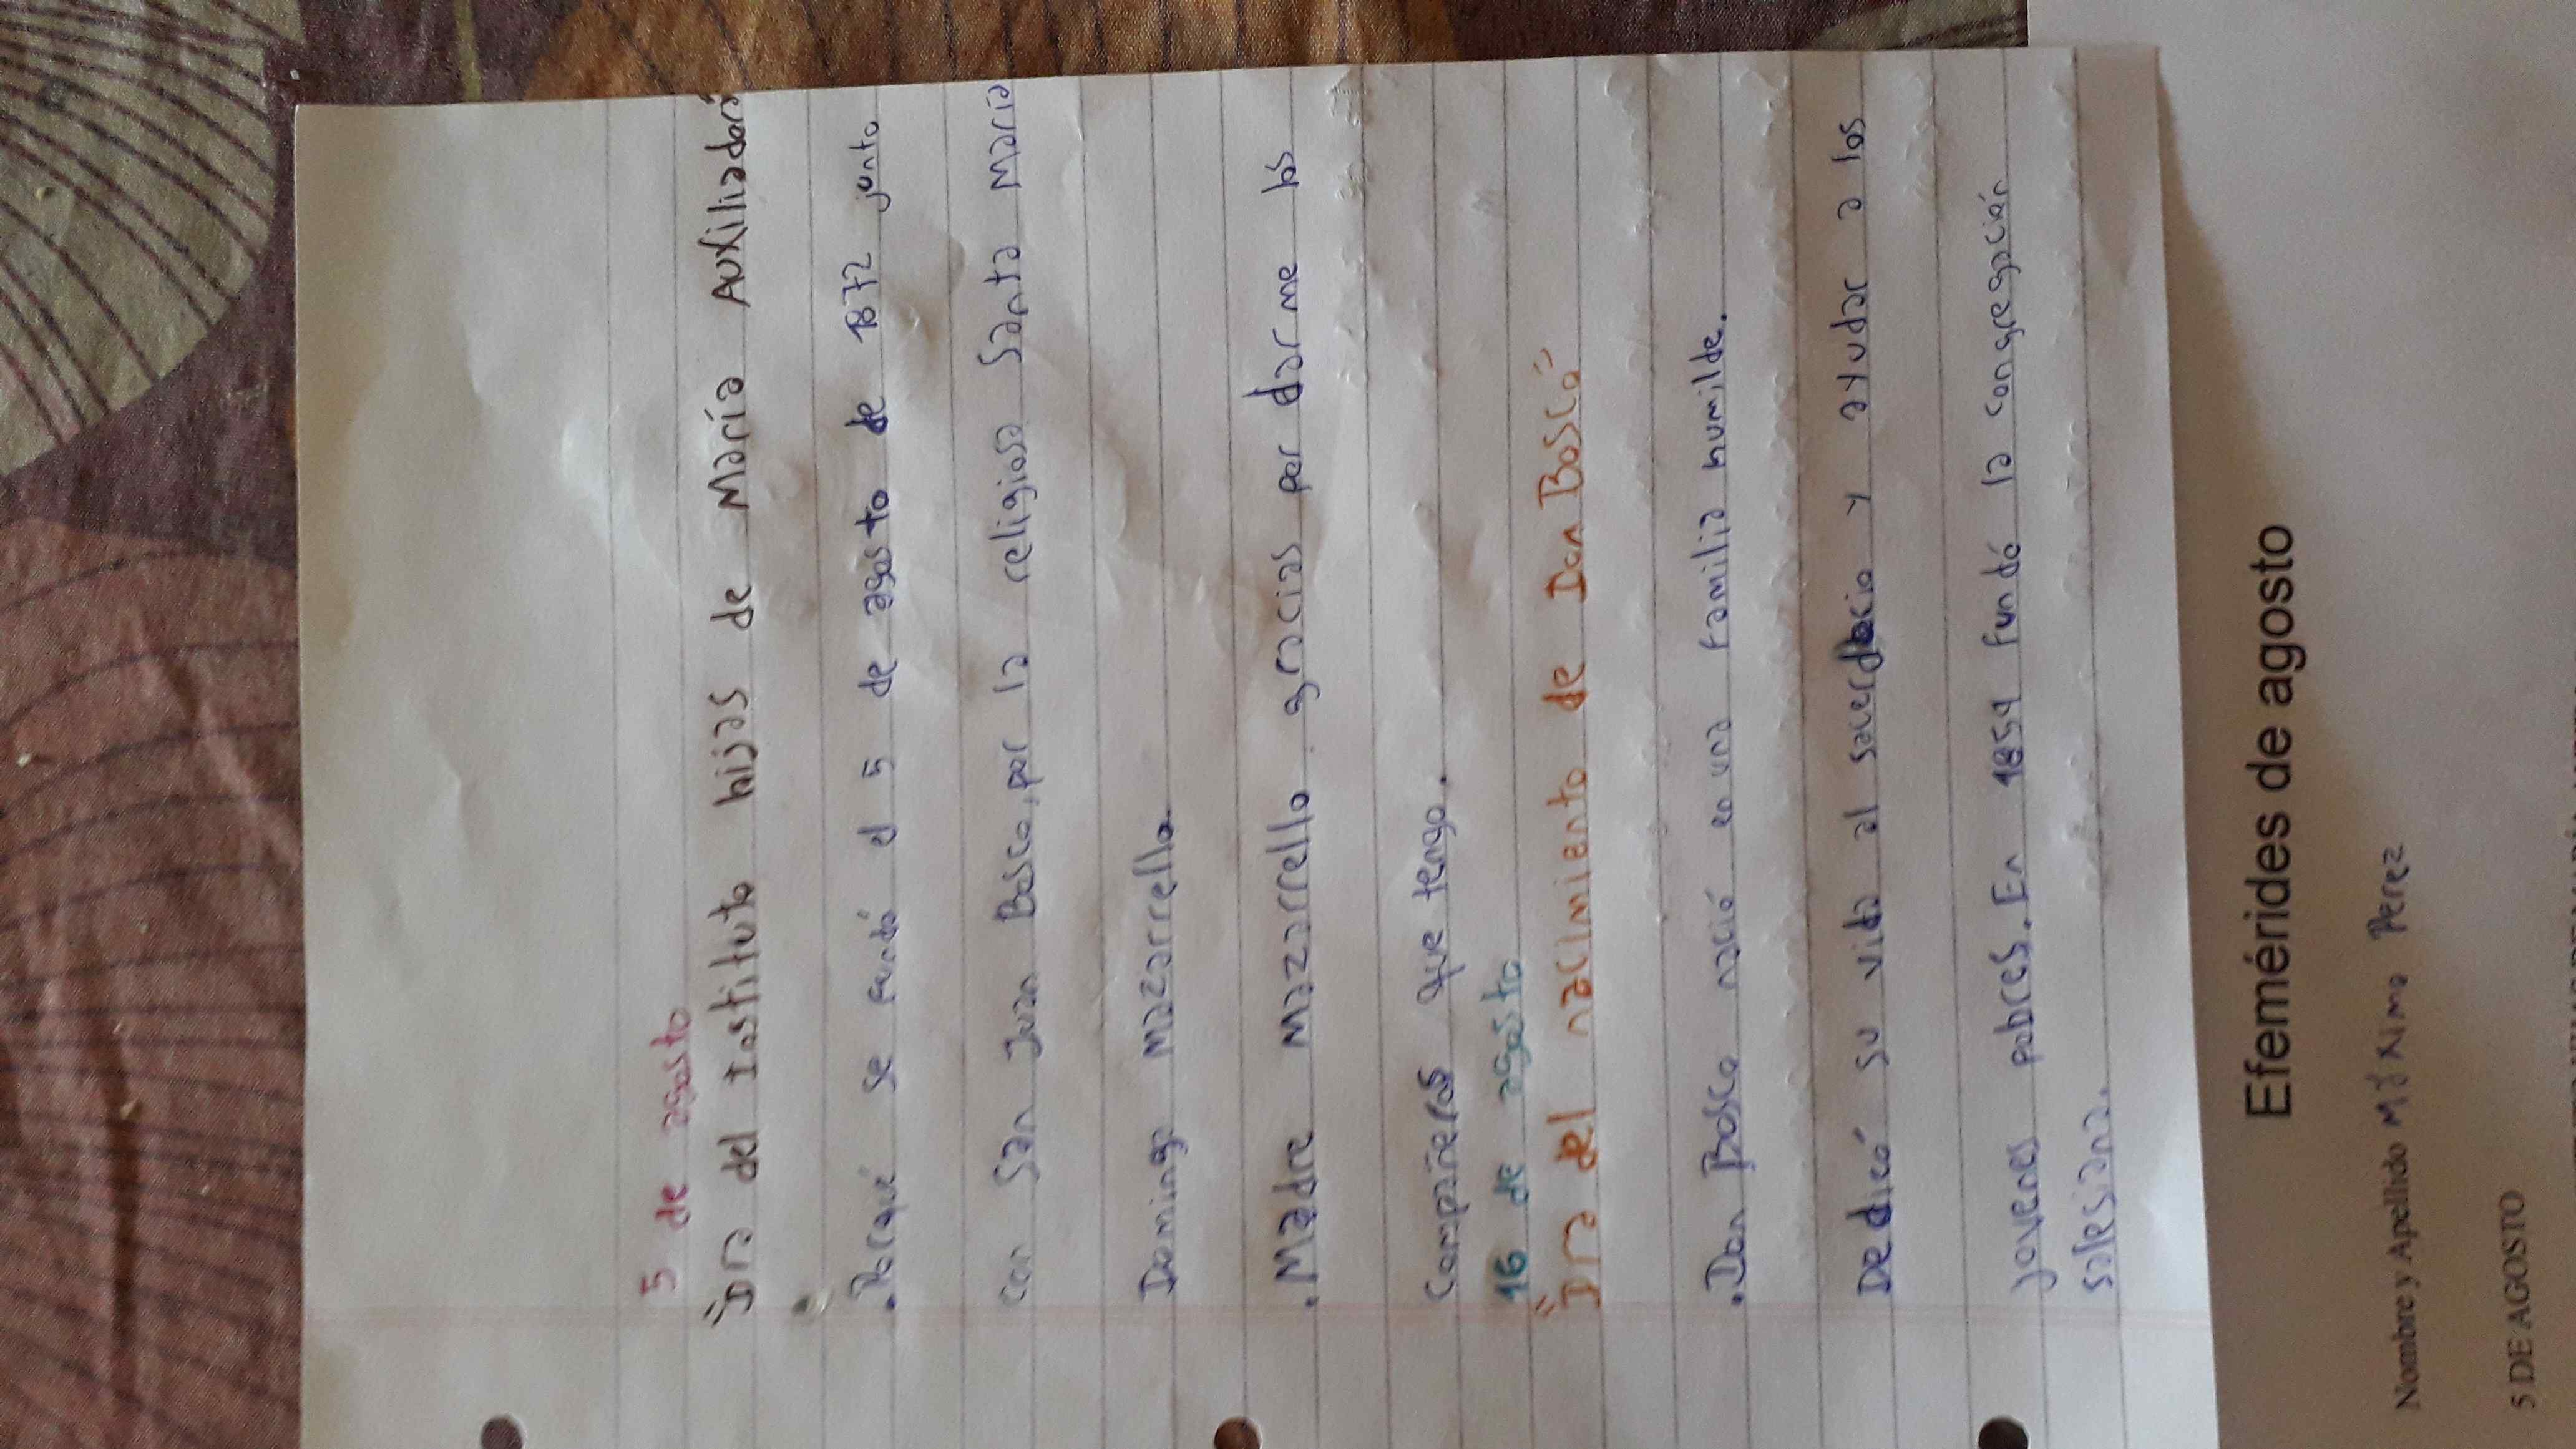 5 de agosto
"Día del Instituto hijas de María Auxiliadora
.Porqué se fundó el 5 de agosto de 1872 junto
con San Juan Bosco, por la religiosa Santa María
Dominga Mazzarrello.
.Madre Mazzarrello gracias por darme los
compañeros que tengo.
16 de agosto
"Día del nacimiento de Don Bosco"
.Don Bosco nació en una familia humilde.
Dedicó su vida al sacerdocio y ayudar a los
jovenes pobres. En 1859 fundó la congregación
salesiana.
Efemérides de agosto
Nombre y Apellido Máximo Perez
5 DE AGOSTO